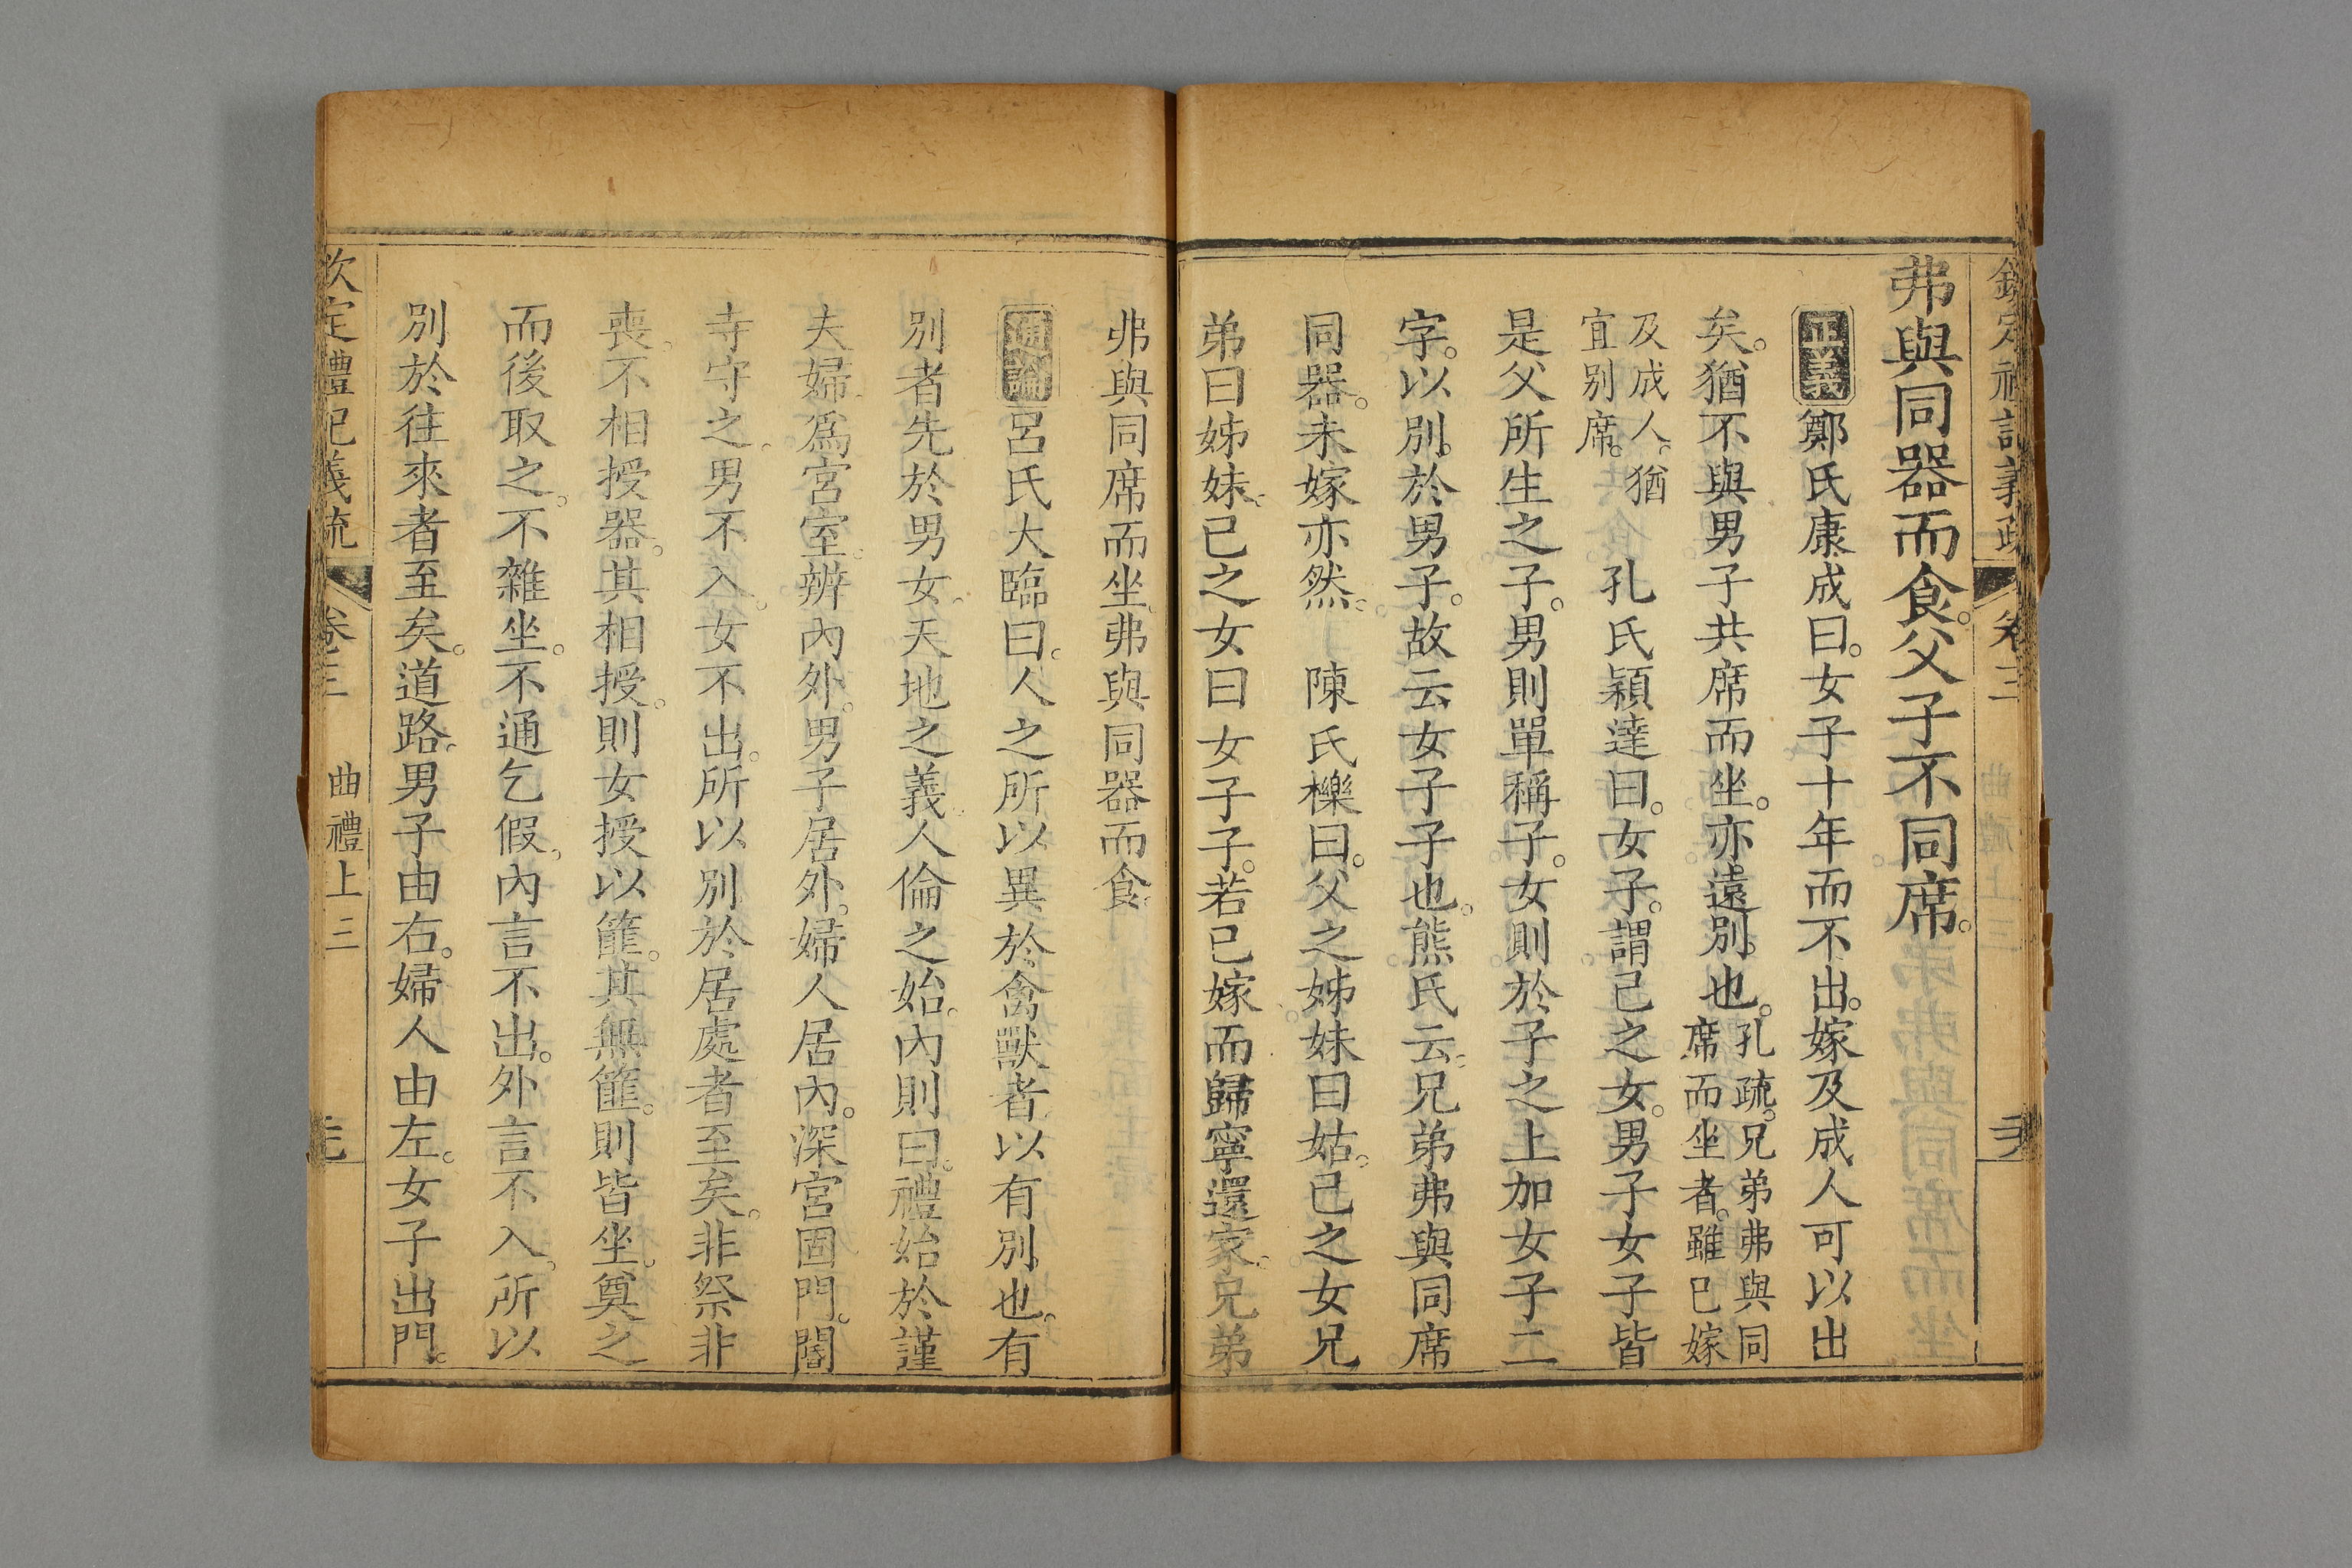 弗與同器而食。父子不同席。
正義鄭氏康成曰。女子十年而不出。嫁及成人可以出
矣。猶不與男子共席而坐。亦遠別也。孔疏。兄弟弗與同
席而坐者。雖已嫁
及成人。猶
宜別席。孔氏穎達曰。女子。謂己之女。男子女子皆
是父所生之子。男則單稱子。女則於子之上加女子二
字。以別。於男子。故云女子子也。熊氏云。兄弟弗與同席
同器。未嫁亦然。陳氏櫟曰。父之姊妹曰姑。己之女兄
弟曰姊妹、己之女曰女子子。若已嫁而歸寧還家、兄弟
弗與同席而坐、弗與同器而食。
通論呂氏大臨曰。人之所以異於禽獸者、以有別也。有
別者先於男女、天地之義、人倫之始。內則曰。禮始於謹
夫婦、爲宮室。辨內外。男子居外。婦人居內。深宮固門。閽
寺守之。男不入。女不出。所以別於居處者至矣。非祭非
喪。不相授器。其相授。則女授以篚。其無篚。則皆坐。奠之
而後取之。不雜坐。不通乞假。內言不出。外言不入。所以
別於往來者至矣。道路。男子由右。婦人由左。女子出門。
定禮記義疏 卷三 曲禮上三